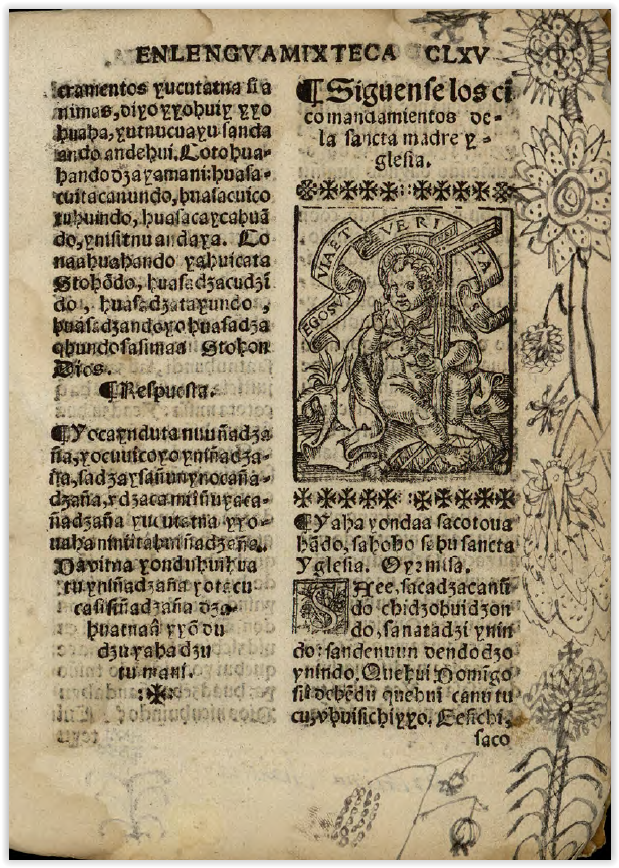 EN LENGVA MIXTECA CLXV
cramentos yucutatna si a
nimas, diyo yyohuiy yyo
huaha, yutnucuayu sanda
ando andehui. Coto hua-
hando dzayamani: huasa-
cuitacanundo, huasacuico
tuhundo, huasacaycahuã
do, ynisitnu andaya. Co
naahuahando yahuicata
Stohõdo, huasadzacudzi
do, huasadzatayundo,
huasadzandoyo huasadza
qhundo sasimaa Stohon
Dios.
¶Respuesta.
¶Yocaynduta nuu ñadza
ña, yocuvicoyo yniñadza-
ña, sadzaysañunynocaña-
dzaña, ydzaca
ñadzaña yucutatna yyo-
dzaña.
Davitna yonduhui hua
tu yniñadzaña yotacu
casisiñadzaña dza-
huatnaã yyõ du
dzu yaha dzu
tu mani.
¶Siguense los ci
co mandamientos de-
la sancta madre y-
glesia.
EGO SVM VIA ET VERITAS
¶Yaha yondaa sacotoua
hãdo, sahoho sahu sancta
Yglesia. Oyr misa.
SAee, sacadzacanũ
do chidzohuidzon
do, sanatadzi ynin
do: sandenuun dendodzo
ynindo. Quehui Domĩgo
sii debẽdu quehui canu tu
cu, vhuisichiyyo. Eesichi,
saco